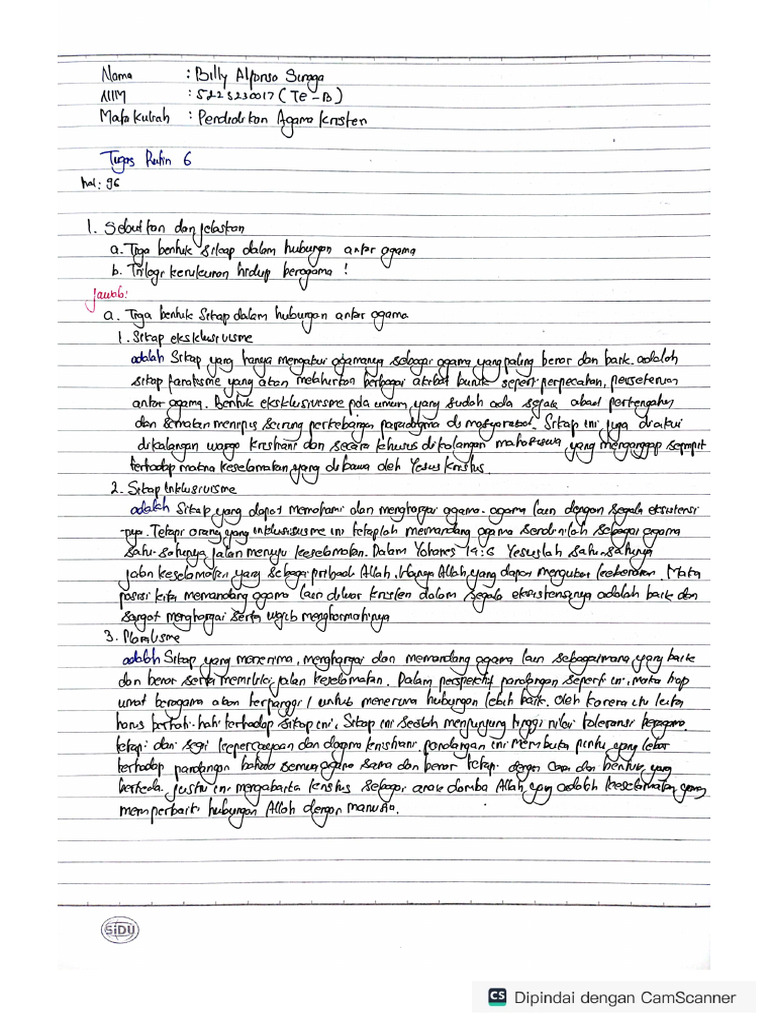 Nama : Billy Alfonso Sinaga
NIM : 5223230017 (TE-B)
Mata Kuliah : Pendidikan Agama Kristen
Tugas Rutin 6
hal: 96
1. Sebutkan dan jelaskan
a. Tiga bentuk sikap dalam hubungan antar agama
b. Trilogi kerukunan hidup beragama !
Jawab:
a. Tiga bentuk Sikap dalam hubungan antar agama
1. Sikap eksklusivisme
adalah Sikap yang hanya mengakui agamanya sebagai agama yang paling benar dan baik. adalah
sikap fanatisme yang akan melahirkan berbagai akibat buruk seperti perpecahan, perseteruan
antar agama. Bentuk eksklusivisme pda umum, yang sudah ada sejak abad pertengahan
dan semakin menipis seiring perkembangan paradigma di masyarakat. Sikap ini juga diakui
dikalangan warga kristiani dan secara khusus dikalangan mahasiswa yang menganggap sempit
terhadap makna keselamatan yang di bawa oleh Yesus Kristus.
2. Sikap Inklusivisme
adalah Sikap yang dapat memahami dan menghargai agama-agama lain dengan segala eksistensi
-nya. Tetapi orang yang inklusivisme ini tetaplah memandang agama Sendirilah sebagai agama
satu-satunya jalan menuju keselamatan. Dalam Yohanes 14:6 Yesuslah satu-satunya
jalan keselamatan yang sebagai pribadi Allah. Hanya Allah yang dapat mengukur kebenaran. Maka
posisi kita memandang agama lain diluar kristen dalam segala eksistensinya adalah baik dan
sangat menghargai serta wajib menghormatinya
3. Pluralisme
adalah Sikap yang menerima, menghargai dan memandang agama lain sebagaimana yang baik
dan benar serta memiliki jalan keselamatan. Dalam perspektif pandangan seperti ini, maka tiap
umat beragama akan terpanggil untuk menerima hubungan lebih baik. Oleh karena itu kita
harus berhati-hati terhadap sikap ini, Sikap ini seolah menjunjung tinggi nilai toleransi
tetapi dari segi kepercayaan dan dogma kristiani. pandangan ini membuka pintu yang lebar
terhadap pandangan bahwa semua agama sama dan benar tetapi dengan cara dan bentuk yang
berbeda. Justru ini mengabaikan kristus sebagai anak domba Allah yang adalah keselamatan yang
memperbaiki hubungan Allah dengan manusia.
SiDU
CS Dipindai dengan CamScanner